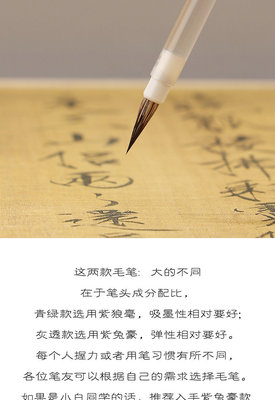 这两款毛笔：大的不同
在于笔头成分配比，
青绿款选用紫狼毫，吸墨性相对要好；
灰透款选用紫兔毫，弹性相对要好。
每个人握力或者用笔习惯有所不同，
各位笔友可以根据自己的需求选择毛笔。
如果是小白同学的话，推荐入手紫兔毫款